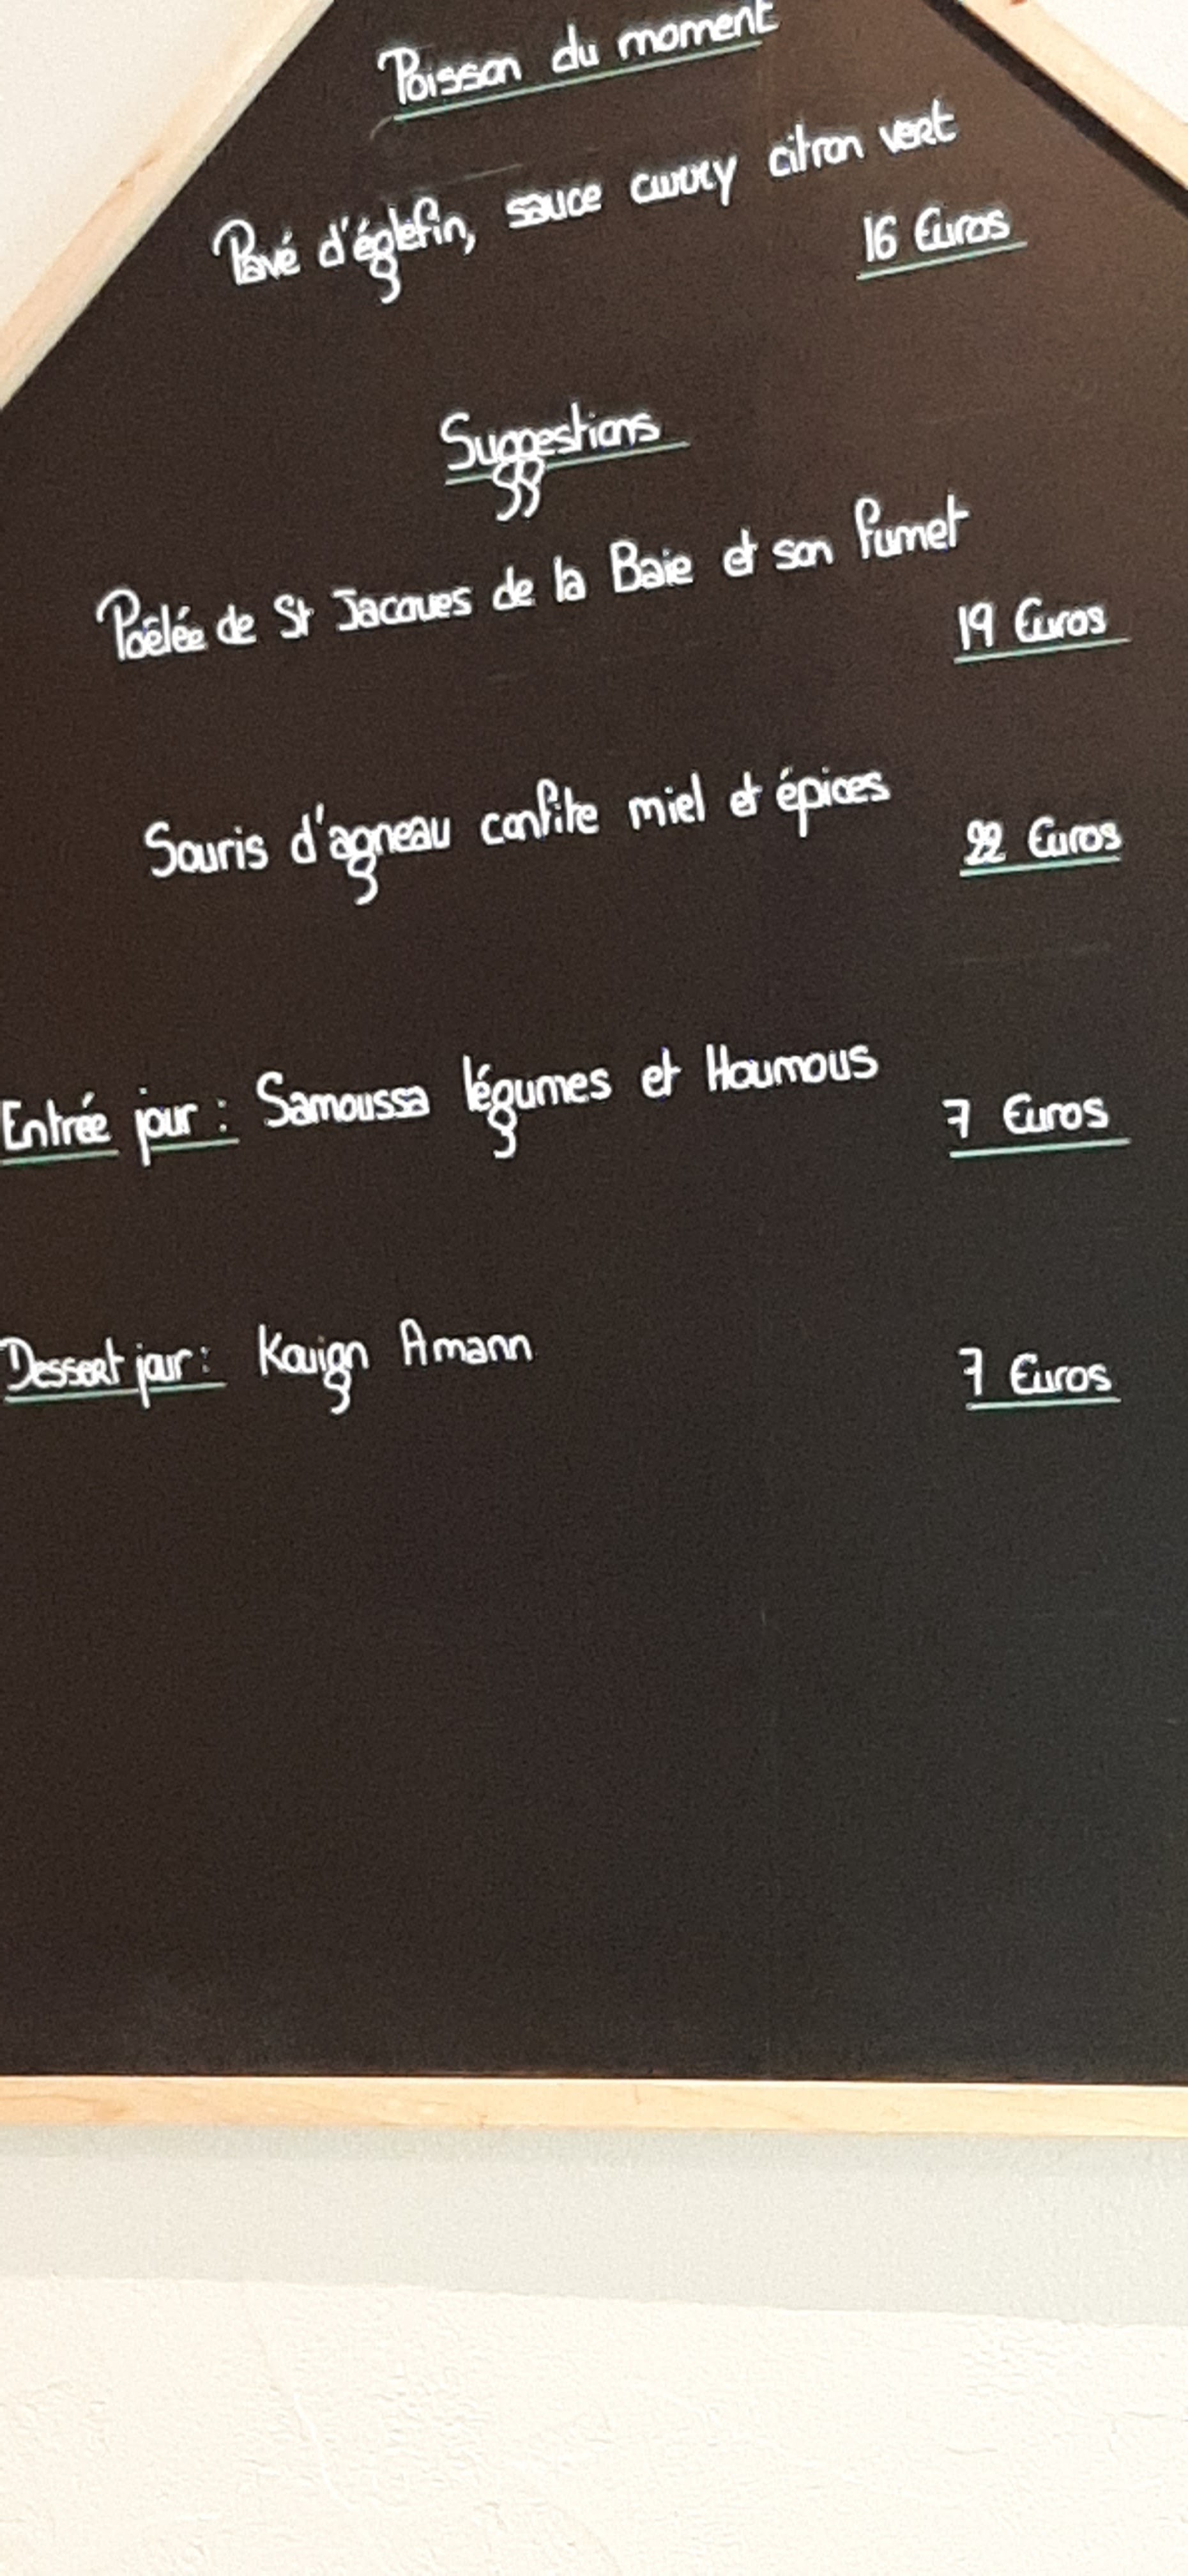 Poisson du moment
Pavé d'églefin, sauce curry citron vert
16 Euros
Suggestions
Poêlée de St Jacques de la Baie et son fumet
19 Euros
Souris d'agneau confite miel et épices
22 Euros
Entrée jour : Samoussa légumes et Houmous
7 Euros
Dessert jour : Kouign Amann
7 Euros